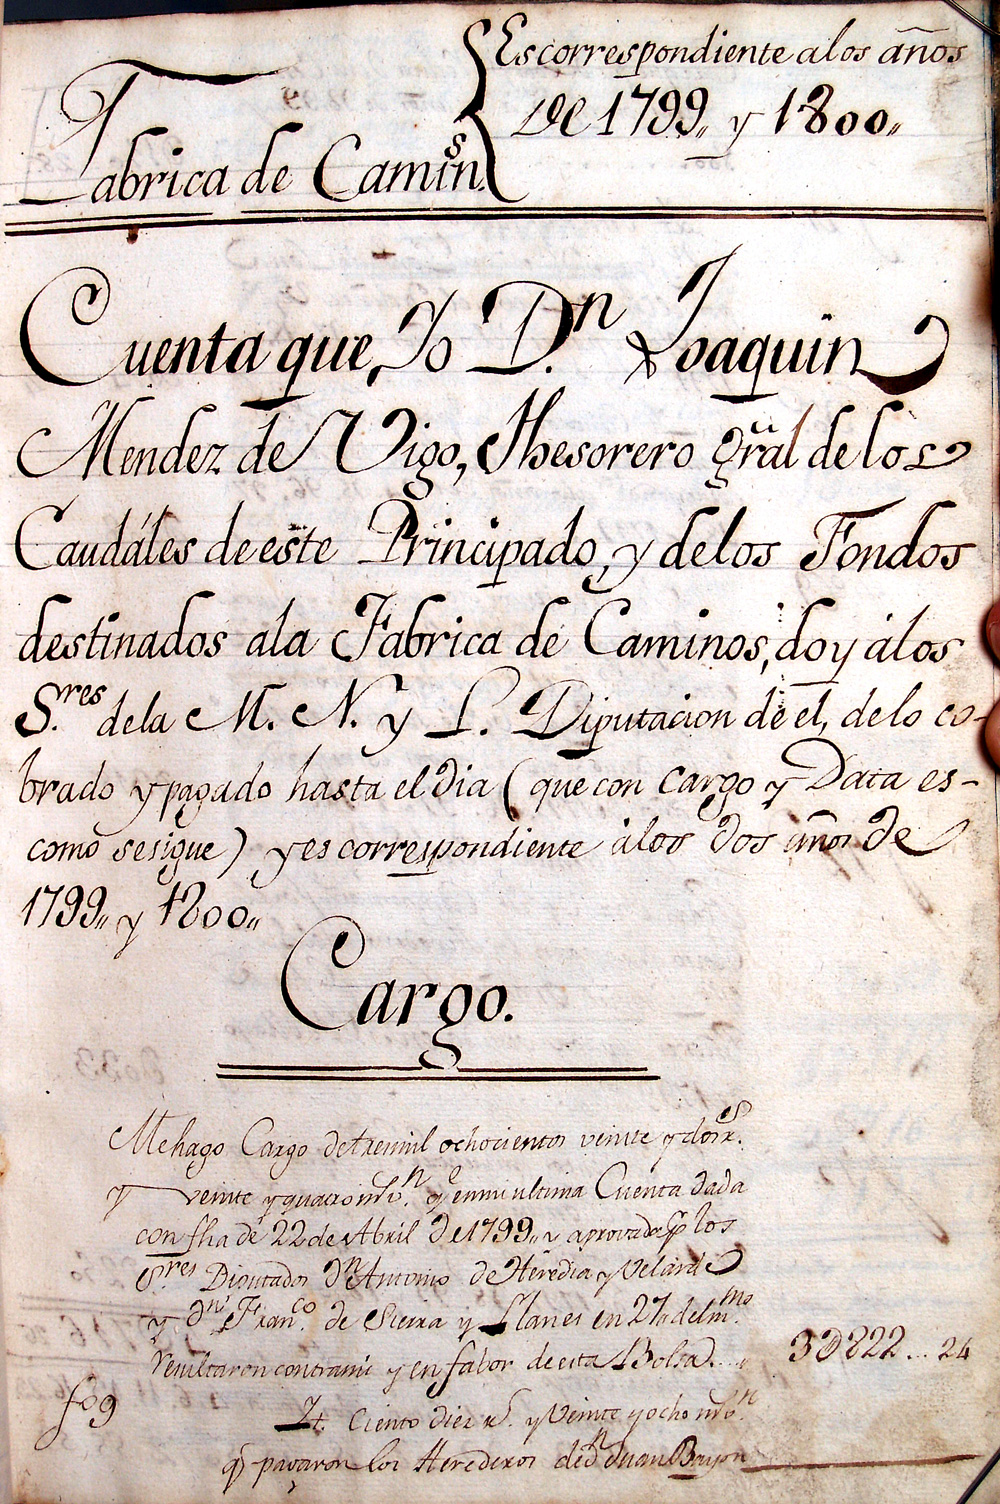 Es correspondiente a los años
De 1799,, y 1800,,
Fabrica de Camin.s
Cuenta que, Yo D.n Joaquin
Mendez de Vigo, Thesorero gr̃al de los
Caudáles de este Principado, y de los Fondos
destinados a la Fabrica de Caminos, doy á los
S.res de la M. N. y L. Diputacion de él, de lo co-
brado y pagado hasta el dia (que con Cargo y Data es-
como se sigue) y es correspondiente á los dos años de
1799,, y 1800,,
Cargo.
Me hago Cargo de tres mil ochocientos veinte y dos r.s
y veinte y quatro mrv.n q.e en mi ultima Cuenta dada
con fha de 22 de Abril de 1799,, y aprovada p.r los
S.res Diputados d.n Antonio de Heredia y Velarde
y d.n Fran.co de Sierra y Llanes en 27,, del m.mo
resultaron contra mi y en fabor de esta Bolsa....
3D822... 24
fo 9
It. Ciento diez r.s y Veinte y ocho mrv.n
q.e pagaron los Herederos de d.n Juan Bayon